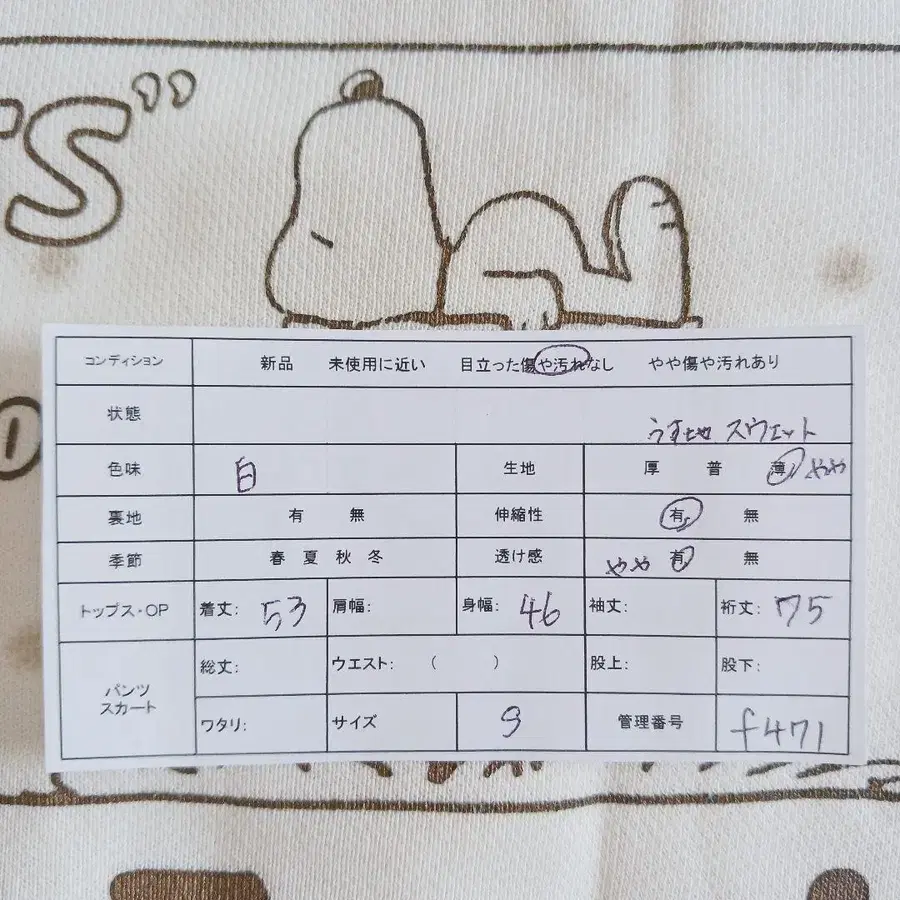 S"
コンディション 新品 未使用に近い 目立った傷や汚れなし やや傷や汚れあり
状態 うす地 スウェット
色味 白 生地 厚 普 薄 やや
裏地 有 無 伸縮性 有 無
季節 春 夏 秋 冬 透け感 やや 有 無
トップス・OP 着丈: 53 肩幅: 身幅: 46 袖丈: 裄丈: 75
パンツ スカート 総丈: ウエスト: ( ) 股上: 股下:
ワタリ: サイズ 管理番号 f471